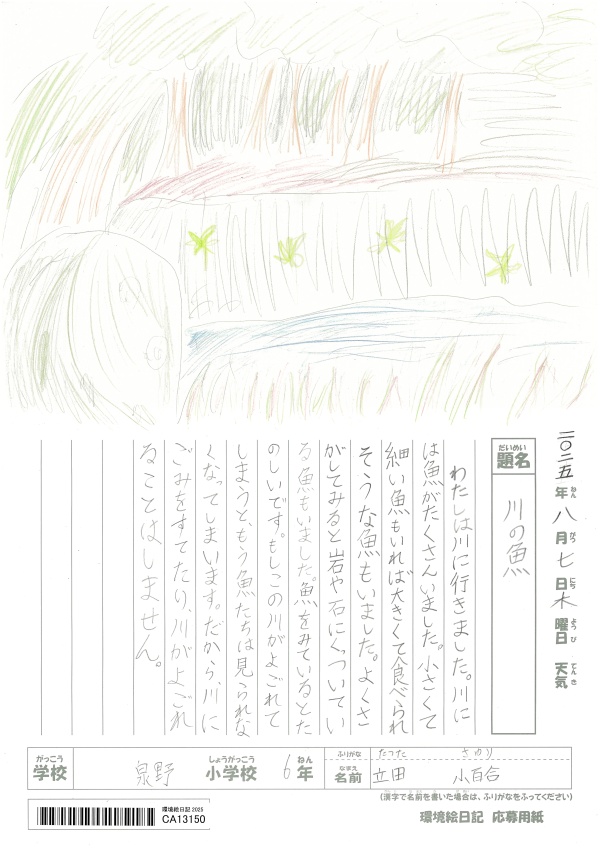 二〇二五年八月七日木曜日 天気
ねん がつ にち ようび てんき
だいめい
題名
川の魚
わたしは川に行きました。川に
は魚がたくさんいました。小さくて
細い魚もいれば大きくて食べられ
そうな魚もいました。よくさ
がしてみると岩や石にくっついてい
る魚もいました。魚をみているとた
のしいです。もしこの川がよごれて
しまうと、もう魚たちは見られな
くなってしまいます。だから、川に
ごみをすてたり、川がよごれ
ることはしません。
がっこう しょうがっこう ねん
学校 泉野 小学校 6年
ふりがな たつた さゆり
なまえ
名前 立田 小百合
(漢字で名前を書いた場合は、ふりがなをふってください)
環境絵日記 応募用紙
環境絵日記 2025
CA13150